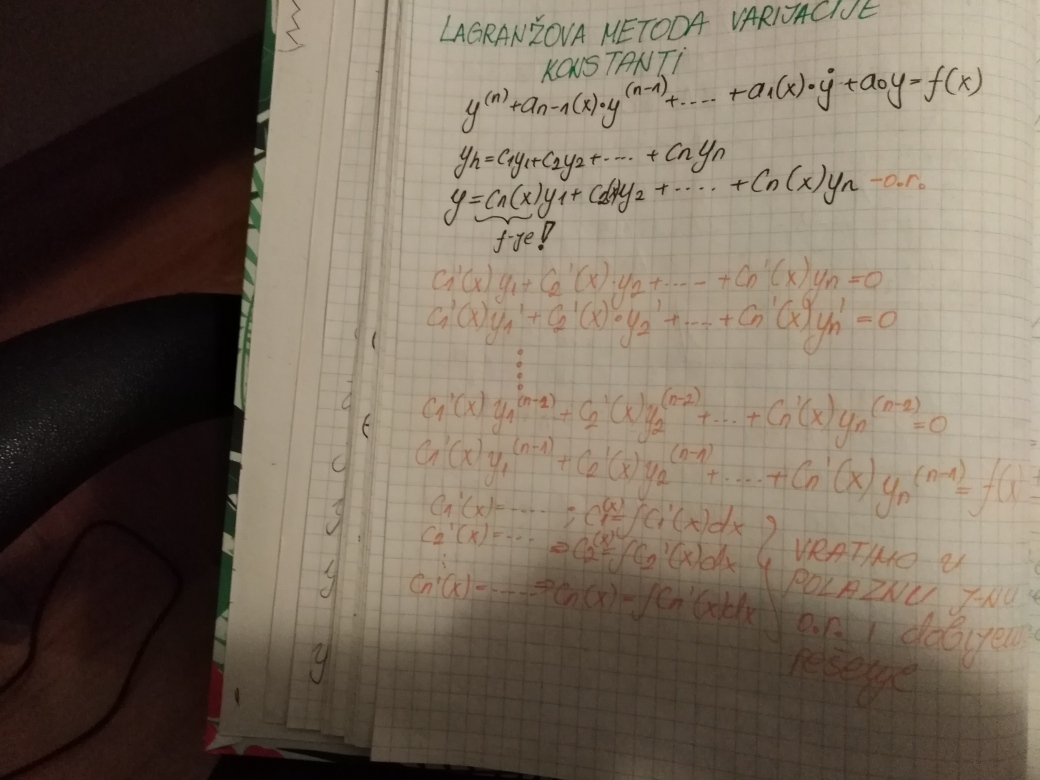 LAGRANŽOVA METODA VARIJACIJE
KONSTANTI
y^(n) + a_{n-1}(x)·y^(n-1) + .... + a_1(x)·ẏ + a_0 y = f(x)
y_h = c_1y_1 + c_2y_2 + .... + c_n y_n
y = c_n(x)y_1 + c_2(x)y_2 + .... + c_n(x)y_n - o.r.
f-je!
c_1'(x) y_1 + c_2'(x)·y_2 + .... + c_n'(x) y_n = 0
c_1'(x) y_1' + c_2'(x)·y_2' + .... + c_n'(x) y_n' = 0
⋮
c_1'(x) y_1^(n-2) + c_2'(x) y_2^(n-2) + ... + c_n'(x) y_n^(n-2) = 0
c_1'(x) y_1^(n-1) + c_2'(x) y_2^(n-1) + .... + c_n'(x) y_n^(n-1) = f(x)
c_1'(x) = .... ; c_1(x) = ∫c_1'(x)dx
c_2'(x) = ... ⇒ c_2(x) = ∫c_2'(x)dx
⋮
c_n'(x) = .... ⇒ c_n(x) = ∫c_n'(x)dx
VRATIMO U
POLAZNU J-NU
o.r. i dobijemo
rešenje